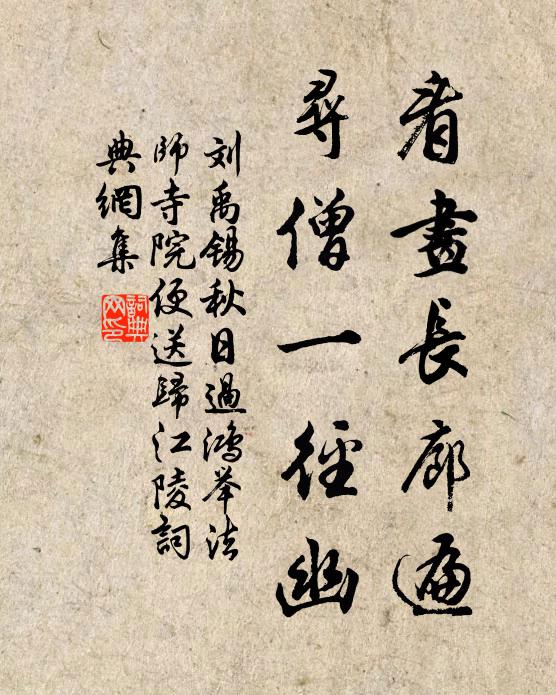 看畫長廊遍
尋僧一徑幽
刘禹锡秋日過鴻举法
師寺院便送歸江陵詞
典網集
詞典网印